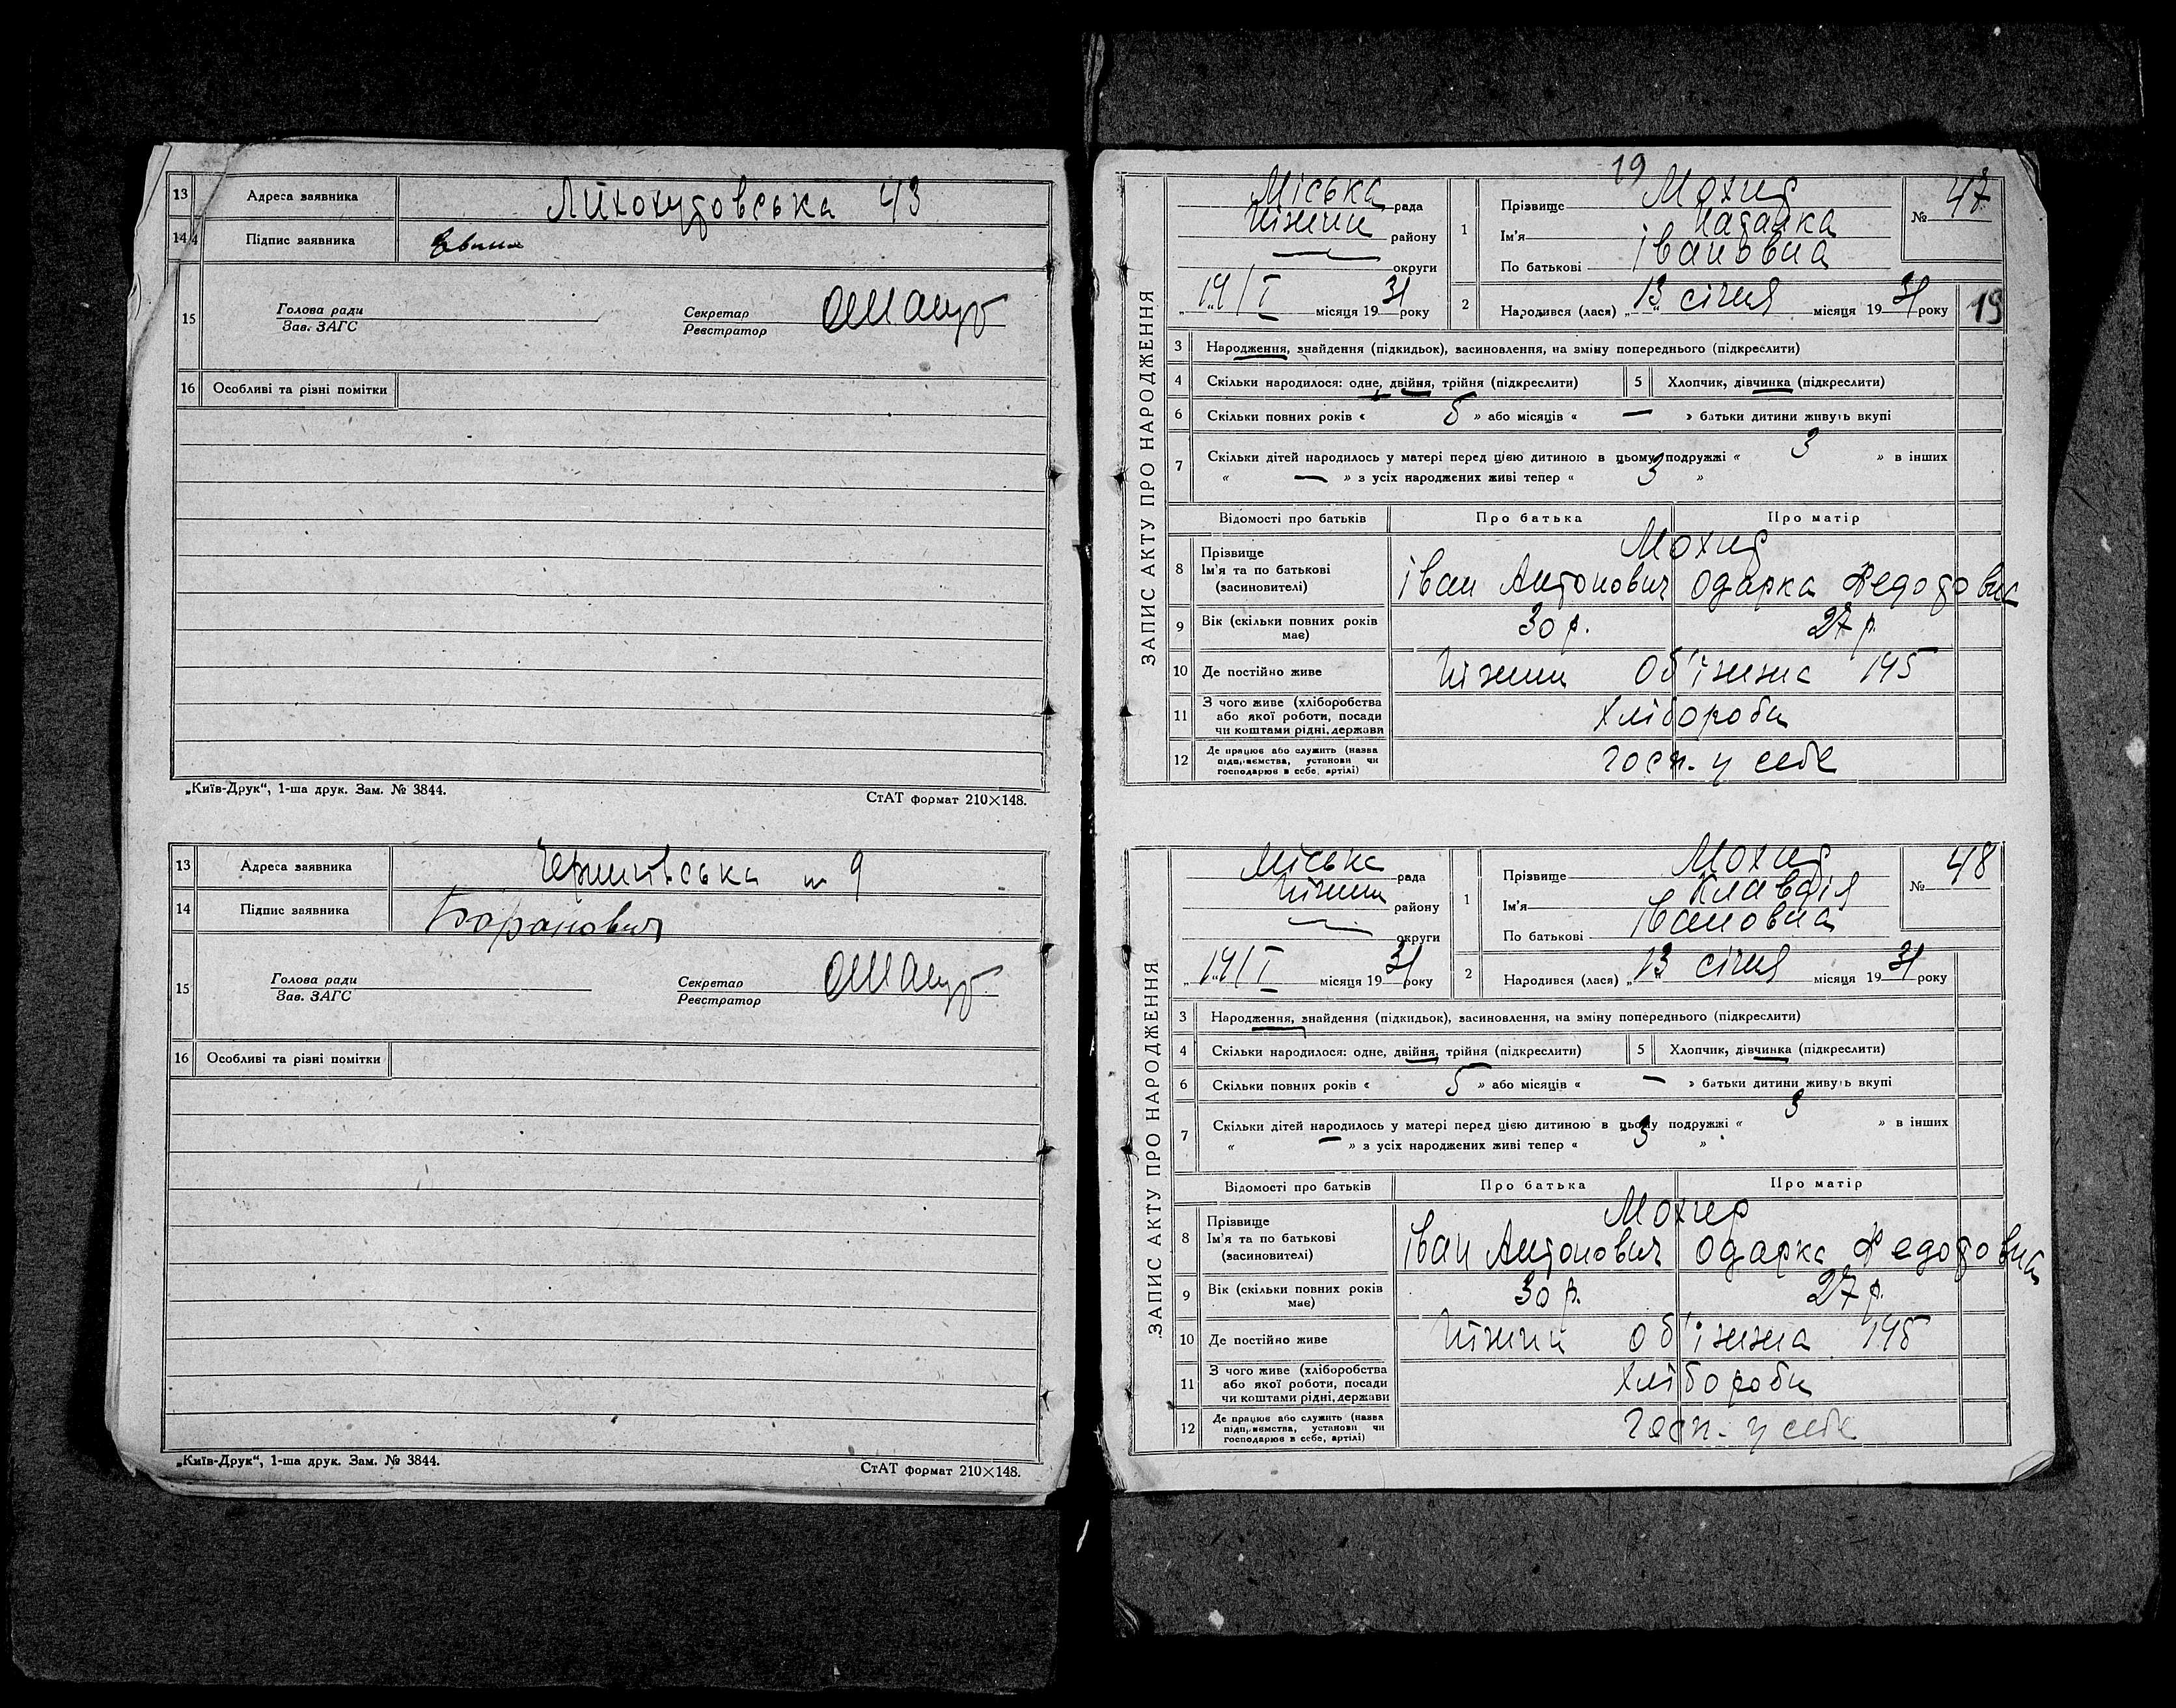 13 Адреса заявника Лихохутовська 43
14 Підпис заявника
15 Голова ради
Зав. ЗАГС
Секретар
Реєстратор
16 Особливі та різні помітки
„Київ-Друк“, 1-ша друк. Зам. № 3844.
СтАТ формат 210×148.
13 Адреса заявника 9
14 Підпис заявника Баранович
15 Голова ради
Зав. ЗАГС
Секретар
Реєстратор
16 Особливі та різні помітки
„Київ-Друк“, 1-ша друк. Зам. № 3844.
СтАТ формат 210×148.
19
ЗАПИС АКТУ ПРО НАРОДЖЕННЯ
Міська рада
Ніжин району
— округи
„19/I місяця 1931 року
1 Прізвище Мохир
Ім'я Наталка
По батькові Івановна
№ 47
2 Народився (лася) „13 січня місяця 1931 року
19
3 Народження, знайдення (підкидьок), засиновлення, на зміну попереднього (підкреслити)
4 Скільки народилося: одне, двійня, трійня (підкреслити)
5 Хлопчик, дівчинка (підкреслити)
6 Скільки повних років « 5 » або місяців « — » батьки дитини живуть вкупі
7 Скільки дітей народилось у матері перед цією дитиною в цьому подружжі « 3 » в інших
« — » з усіх народжених живі тепер « 3 »
Відомості про батьків Про батька Про матір
8 Прізвище
Ім'я та по батькові
(засиновителі)
Мохир
Іван Антонович Одарка Федотовна
9 Вік (скільки повних років
має)
30 р. 27 р.
10 Де постійно живе Ніжин Об'їзна 195
11 З чого живе (хліборобства
або якої роботи, посади
чи коштами рідні, держави
Хлібороби
12 Де працює або служить (назва
підприємства, установи чи
господарює в себе, артілі)
госп. у себе
ЗАПИС АКТУ ПРО НАРОДЖЕННЯ
Міська рада
Ніжин району
— округи
„19/I місяця 1931 року
1 Прізвище Мохир
Ім'я Клавдія
По батькові Івановна
№ 48
2 Народився (лася) „13 січня місяця 1931 року
3 Народження, знайдення (підкидьок), засиновлення, на зміну попереднього (підкреслити)
4 Скільки народилося: одне, двійня, трійня (підкреслити)
5 Хлопчик, дівчинка (підкреслити)
6 Скільки повних років « 5 » або місяців « — » батьки дитини живуть вкупі
7 Скільки дітей народилось у матері перед цією дитиною в цьому подружжі « 3 » в інших
« — » з усіх народжених живі тепер « 3 »
Відомості про батьків Про батька Про матір
8 Прізвище
Ім'я та по батькові
(засиновителі)
Мохир
Іван Антонович Одарка Федотовна
9 Вік (скільки повних років
має)
30 р. 27 р.
10 Де постійно живе Ніжин Об'їзна 195
11 З чого живе (хліборобства
або якої роботи, посади
чи коштами рідні, держави
Хлібороби
12 Де працює або служить (назва
підприємства, установи чи
господарює в себе, артілі)
Госп. у себе